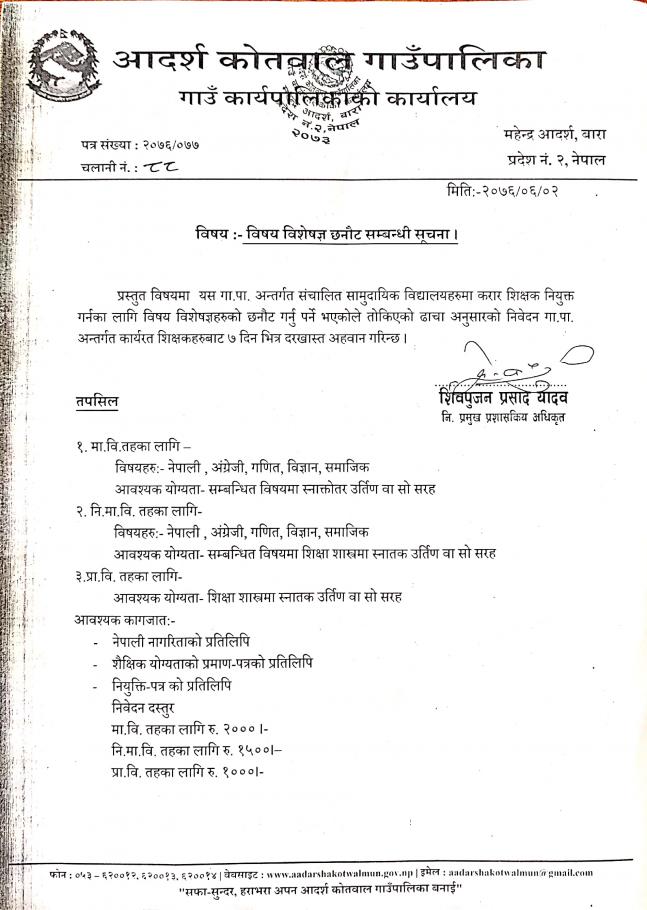 आदर्श कोतवाल गाउँपालिका
गाउँ कार्यपालिकाको कार्यालय
आदर्श, बारा
प्रदेश नं. २, नेपाल
२०७३
पत्र संख्या : २०७६/०७७
महेन्द्र आदर्श, बारा
चलानी नं. : ८८
प्रदेश नं. २, नेपाल
मिति:-२०७६/०६/०२
विषय :- विषय विशेषज्ञ छनौट सम्बन्धी सूचना ।
प्रस्तुत विषयमा यस गा.पा. अन्तर्गत संचालित सामुदायिक विद्यालयहरुमा करार शिक्षक नियुक्त
गर्नका लागि विषय विशेषज्ञहरुको छनौट गर्नु पर्ने भएकोले तोकिएको ढाचा अनुसारको निवेदन गा.पा.
अन्तर्गत कार्यरत शिक्षकहरुबाट ७ दिन भित्र दरखास्त अहवान गरिन्छ ।
शिवपुजन प्रसाद यादव
नि. प्रमुख प्रशासकिय अधिकृत
तपसिल
१. मा.वि.तहका लागि –
विषयहरु:- नेपाली , अंग्रेजी, गणित, विज्ञान, समाजिक
आवश्यक योग्यता- सम्बन्धित विषयमा स्नाक्तोतर उर्तिण वा सो सरह
२. नि.मा.वि. तहका लागि-
विषयहरु:- नेपाली , अंग्रेजी, गणित, विज्ञान, समाजिक
आवश्यक योग्यता- सम्बन्धित विषयमा शिक्षा शास्त्रमा स्नातक उर्तिण वा सो सरह
३.प्रा.वि. तहका लागि-
आवश्यक योग्यता- शिक्षा शास्त्रमा स्नातक उर्तिण वा सो सरह
आवश्यक कागजात:-
- नेपाली नागरिताको प्रतिलिपि
- शैक्षिक योग्यताको प्रमाण-पत्रको प्रतिलिपि
- नियुक्ति-पत्र को प्रतिलिपि
निवेदन दस्तुर
मा.वि. तहका लागि रु. २००० ।-
नि.मा.वि. तहका लागि रु. १५००।–
प्रा.वि. तहका लागि रु. १०००।-
फोन : ०५३ – ६२००१२, ६२००१३, ६२००१४ | वेवसाइट : www.aadarshakotwalmun.gov.np | इमेल : aadarshakotwalmun@gmail.com
"सफा-सुन्दर, हराभरा अपन आदर्श कोतवाल गाउँपालिका बनाई"